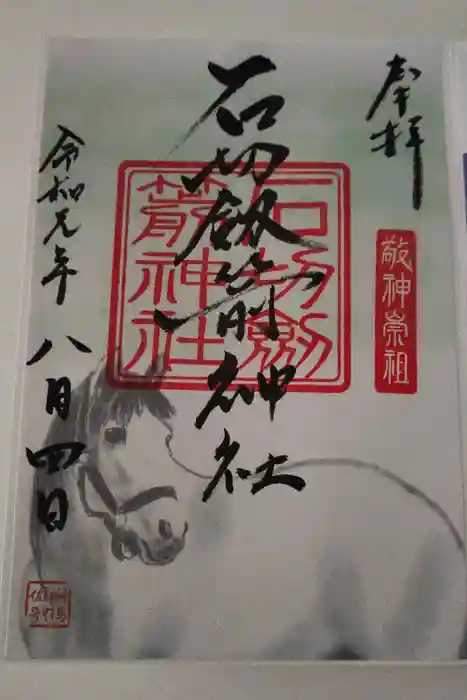 奉拝
敬神崇祖
石切劔箭神社
石切劔
箭神社
令和元年
八月四日